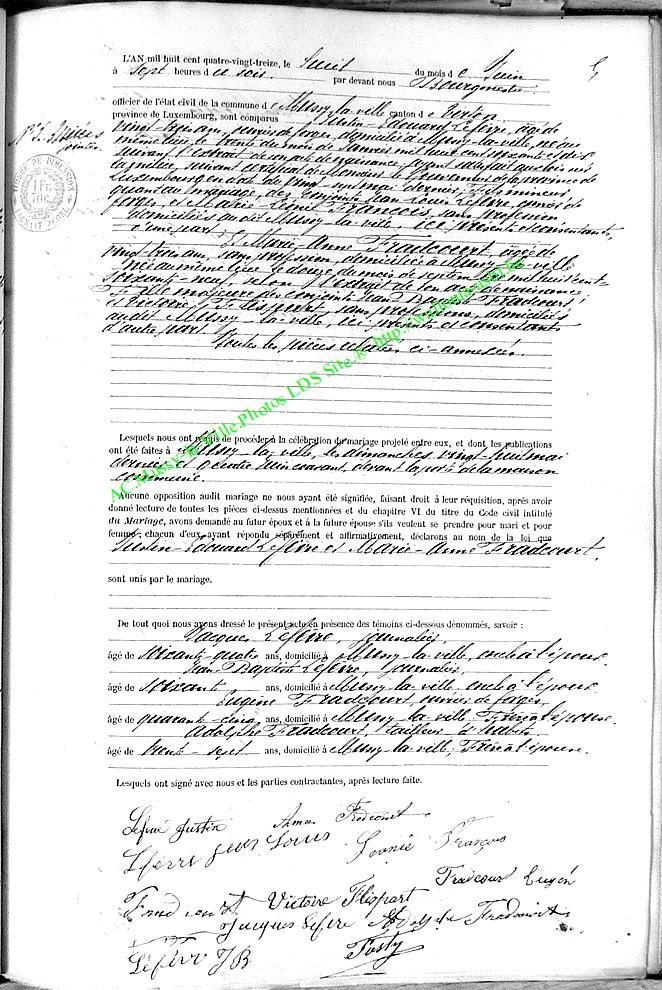 L'AN mil huit cent quatre-vingt-treize, le huit du mois d e Juin
à sept heures d u soir. par devant nous Bourgmestre
officier de l'état civil de la commune d e Mussy-la-ville canton d e Virton
province de Luxembourg, sont comparus Justin-Edouard Lefèvre, âgé de
vingt-trois ans, ouvrier de forges, domicilié à Mussy-la-ville, né au
même lieu le trente du mois de Janvier mil huit cent soixante et dix
suivant l'extrait de son acte de naissance, ayant satisfait aux lois sur
la milice, suivant certificat de Monsieur le Gouverneur de la province de
Luxembourg en date du vingt-sept mai dernier, Fils mineur
quant au mariage, des conjoints Jean Louis Lefèvre, ouvrier de
forges, et Marie-Léonie François, sans profession
domiciliés au dit Mussy-la-ville, ici présents et consentants,
d'une part;
Et Marie-Anne Fradcourt, âgée de
vingt trois ans, sans profession, domiciliée à Mussy-la-ville
née au même lieu le douze du mois de septembre mil huit cent-
soixante-neuf, selon l'extrait de son acte de naissance,
Fille majeure des conjoints Jean Baptiste Fradcourt
et Victoire Flespart, sans professions, domiciliés
au dit Mussy-la-ville, ici présents et consentants
d'autre part.
Toutes les pièces relatées ci-annexées.
N° 5.
TIMBRE DE DIMENSION
1 Fr. 70 c.
AC.Mussy-la-Ville.Photos LDS Site.be http://wallonia-asbl.be
Lesquels nous ont requis de procéder à la célébration du mariage projeté entre eux, et dont les publications
ont été faites à Mussy-la-ville, les dimanches vingt-huit mai
dernier et quatre Juin courant, devant la porte de la maison
commune.
Aucune opposition audit mariage ne nous ayant été signifiée, faisant droit à leur réquisition, après avoir
donné lecture de toutes les pièces ci-dessus mentionnées et du chapitre VI du titre du Code civil intitulé
du Mariage, avons demandé au futur époux et à la future épouse s'ils veulent se prendre pour mari et pour
femme; chacun d'eux ayant répondu séparément et affirmativement, déclarons au nom de la loi que
Justin-Edouard Lefèvre et Marie-Anne Fradcourt,
sont unis par le mariage.
De tout quoi nous avons dressé le présent acte en présence des témoins ci-dessous dénommés, savoir :
Jacques Lefèvre, Journalier,
âgé de soixante-quatre ans, domicilié à Mussy-la-ville, oncle à l'époux.
Jean Baptiste Lefèvre, Journalier,
âgé de soixante ans, domicilié à Mussy-la-ville, oncle à l'époux
Eugène Fradcourt, ouvrier de forges,
âgé de quarante-cinq ans, domicilié à Mussy-la-ville, Frère à l'épouse.
Adolphe Fradcourt, tailleur d'habits
âgé de trente-sept ans, domicilié à Mussy-la-ville, Frère à l'épouse.
Lesquels ont signé avec nous et les parties contractantes, après lecture faite.
Lefèvre Justin Anna Fradcourt
Lefèvre Jean Louis Léonie François
Fradcourt Eugén
Fradcourt Victoire Flespart
Jacques Lefèvre Adolphe Fradcourt
Lefèvre JB